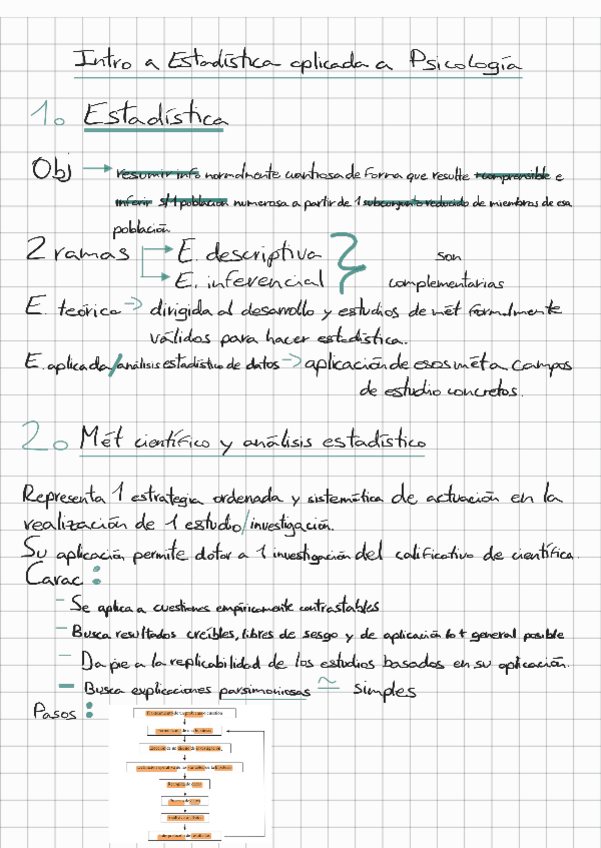 Intro a Estadística aplicada a Psicología
1. Estadística
Obj → resumir info normalmente cuantiosa de forma que resulte + comprensible e
inferir s/ 1 población numerosa a partir de 1 subconjunto reducido de miembros de esa
población
2 ramas → E. descriptiva
→ E. inferencial
son
complementarias
E. teórica -> dirigida al desarrollo y estudios de mét formalmente
válidos para hacer estadística.
E. aplicada/análisis estadístico de datos -> aplicación de esos mét a campos
de estudio concretos.
2. Mét científico y análisis estadístico
Representa 1 estrategia ordenada y sistemática de actuación en la
realización de 1 estudio/investigación.
Su aplicación permite dotar a 1 investigación del calificativo de científica.
Carac:
- Se aplica a cuestiones empíricamente contrastables
- Busca resultados creíbles, libres de sesgo y de aplicación lo + general posible
- Da pie a la replicabilidad de los estudios basados en su aplicación.
- Busca explicaciones parsimoniosas ≃ simples
Pasos: